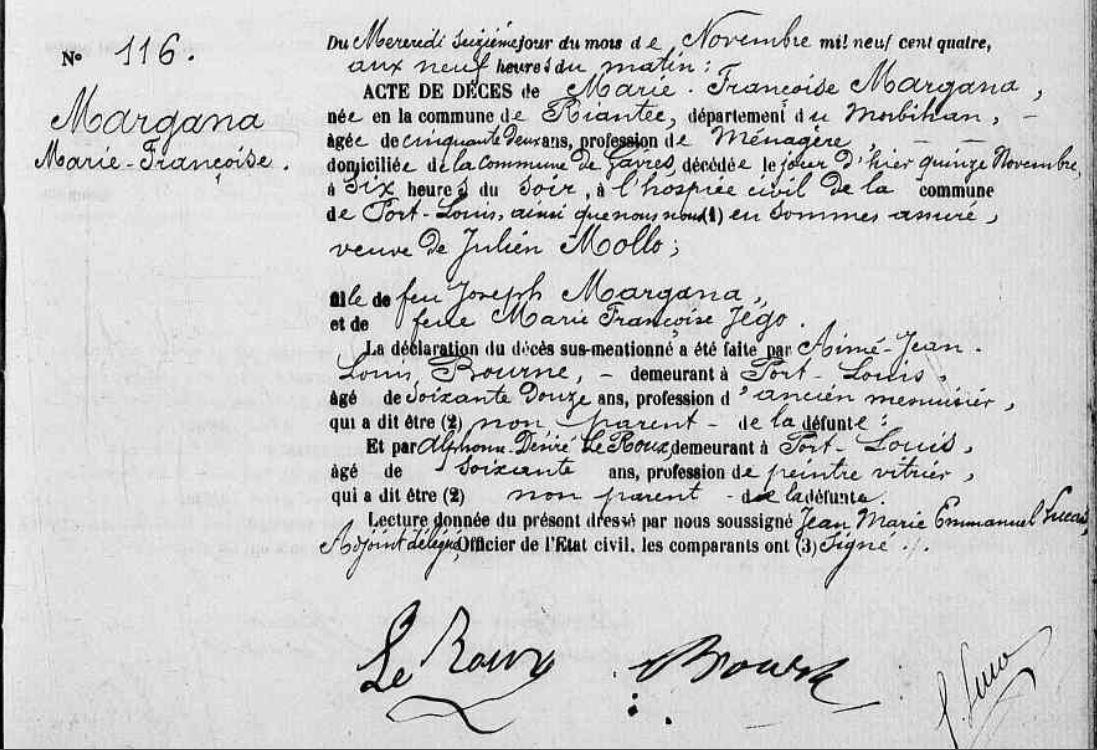 N° 116.
Margana
Marie-Françoise.
Du Mercredi seizième jour du mois de Novembre mil neuf cent quatre,
aux neuf heures du matin :
ACTE DE DÉCES de Marie-Françoise Margana,
née en la commune de Riantec, département du Morbihan, -
âgée de cinquante deux ans, profession de Ménagère, - - -
domiciliée de la Commune de Gavres, décédée le jour d'hier quinze Novembre,
à Six heures du Soir, à l'hospice civil de la commune
de Port-Louis, ainsi que nous nous (1) en sommes assuré,
veuve de Julien Mollo ;
fille de feu Joseph Margana,
et de feue Marie Françoise Jégo.
La déclaration du décès sus-mentionné a été faite par Aimé-Jean-
Louis, Bourne, - demeurant à Port-Louis,
âgé de Soixante Douze ans, profession d'ancien menuisier,
qui a dit être (2) non parent - de la défunte :
Et par Alphonse Désiré Le Roux, demeurant à Port-Louis,
âgé de Soixante ans, profession de peintre vitrier,
qui a dit être (2) non parent - de la défunte.
Lecture donnée du présent dressé par nous soussigné Jean Marie Emmanuel Lucas,
Adjoint délégué, Officier de l'Etat civil. les comparants ont (3) Signé ./.
Le Roux